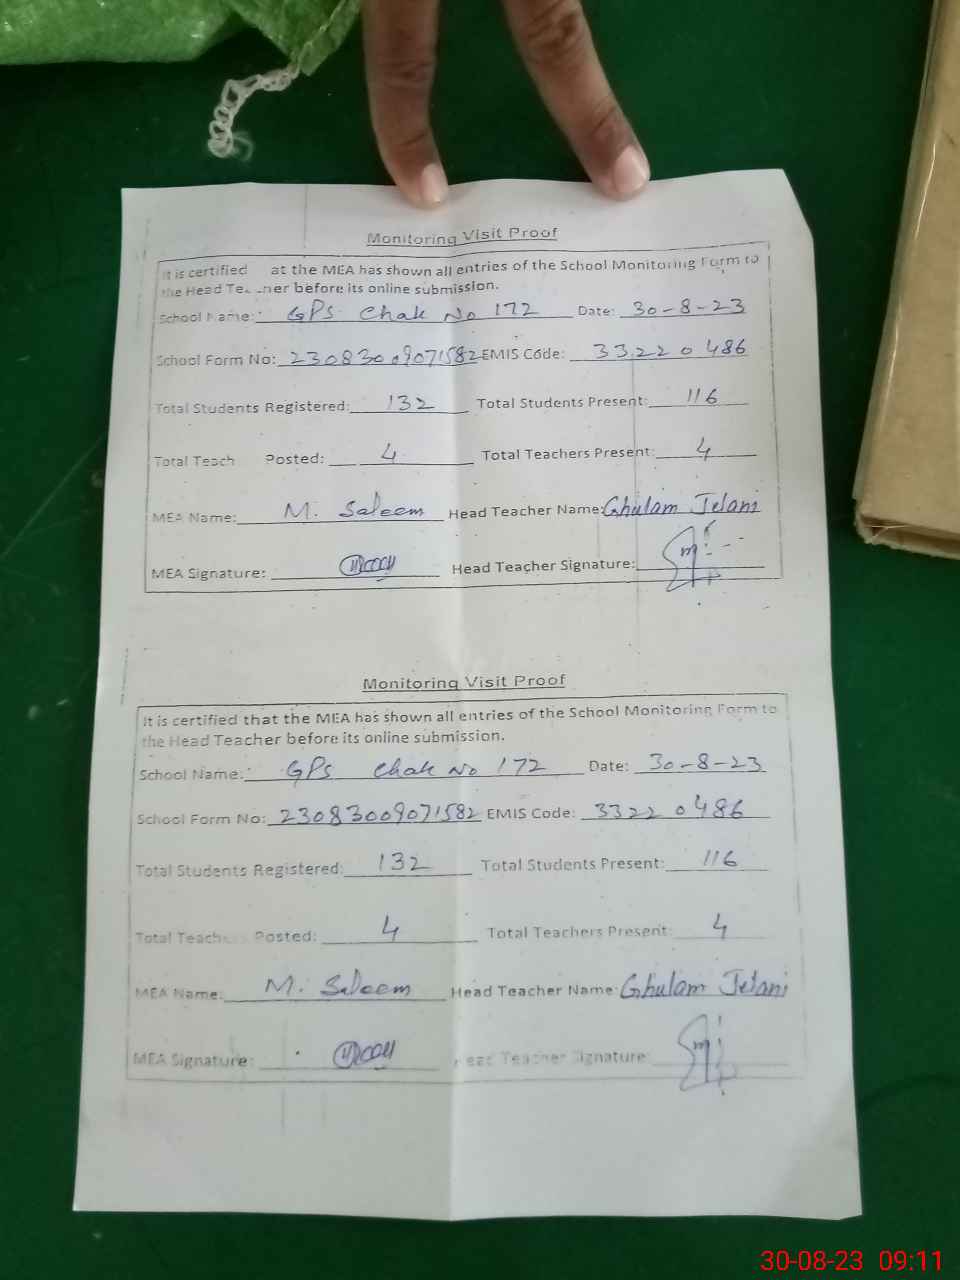 Monitoring Visit Proof
It is certified at the MEA has shown all entries of the School Monitoring Form to
the Head Teacher before its online submission.
School Name: GPS Chak No 172 Date: 30-8-23
School Form No: 23083009071582 EMIS Code: 33220486
Total Students Registered: 132 Total Students Present: 116
Total Teach Posted: 4 Total Teachers Present: 4
MEA Name: M. Saleem Head Teacher Name: Ghulam Jelani
MEA Signature: Head Teacher Signature:
Monitoring Visit Proof
It is certified that the MEA has shown all entries of the School Monitoring Form to
the Head Teacher before its online submission.
School Name: GPS Chak No 172 Date: 30-8-23
School Form No: 23083009071582 EMIS Code: 33220486
Total Students Registered: 132 Total Students Present: 116
Total Teachers Posted: 4 Total Teachers Present: 4
MEA Name: M. Saleem Head Teacher Name: Ghulam Jelani
MEA Signature: Head Teacher Signature:
30-08-23 09:11